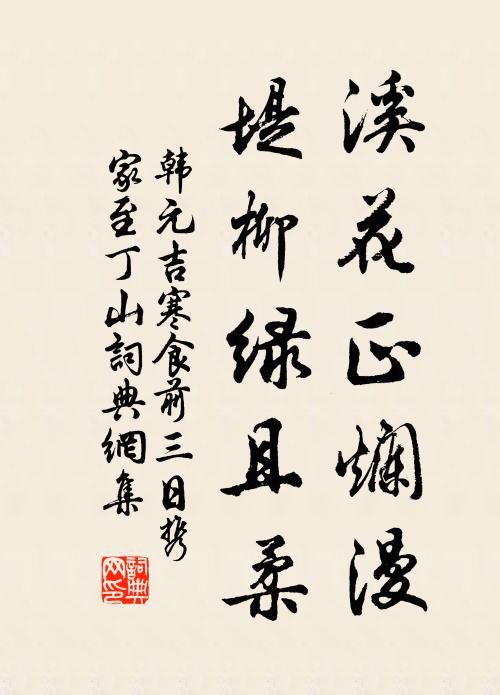 溪花正爛漫
堤柳绿且柔
韩元吉寒食前三日携
家至丁山詞典網集
詞典
网印